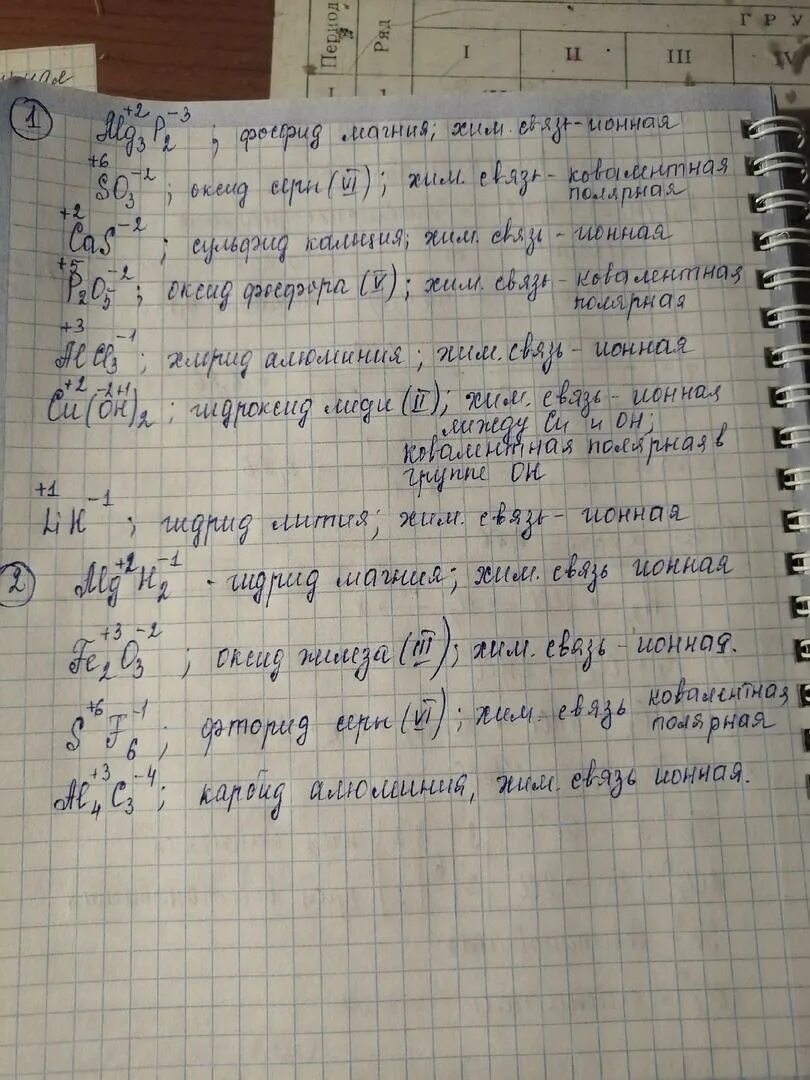 Период
Ряд
Г Р У
I II III IV
1
+2 -3
Mg3P2 ; фосфид магния; хим. связь-ионная
+6 -2
SO3 ; оксид серы (VI); хим. связь- ковалентная
полярная
+2 -2
CaS ; сульфид кальция; хим. связь - ионная
+5 -2
P2O5 ; оксид фосфора (V); хим. связь- ковалентная
полярная
+3 -1
AlCl3 ; хлорид алюминия ; хим. связь - ионная
+2 -2+1
Cu(OH)2 ; гидроксид меди (II); хим. связь - ионная
между Cu и OH;
ковалентная полярная в
группе OH
+1 -1
LiH ; гидрид лития; хим. связь- ионная
2
+2 -1
MgH2 - гидрид магния; хим. связь ионная
+3 -2
Fe2O3 ; оксид железа (III); хим. связь - ионная.
+6 -1
SF6 ; фторид серы (VI); хим. связь ковалентная
полярная
+3 -4
Al4C3 ; карбид алюминия, хим. связь ионная.